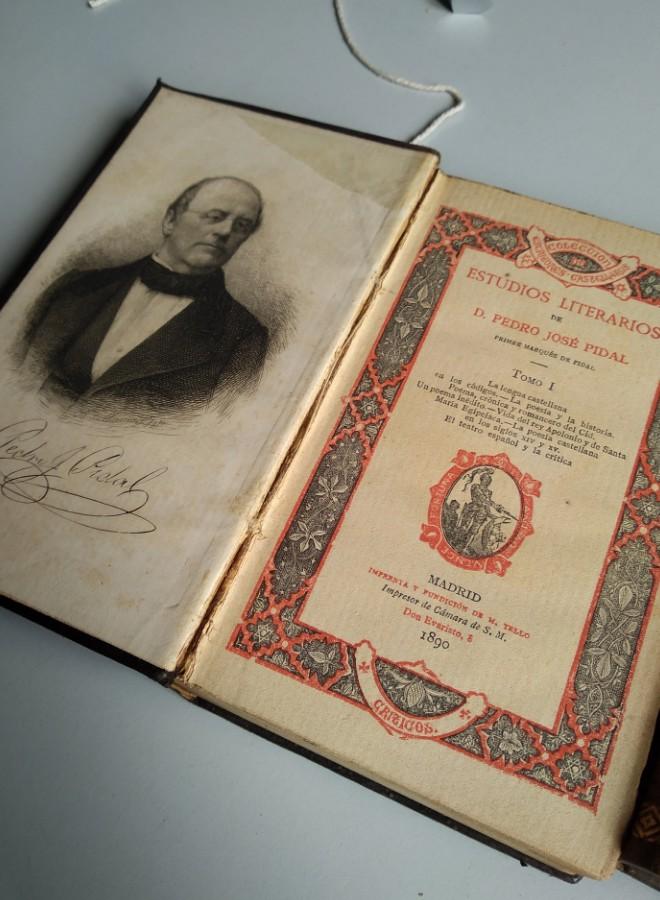 Pedro J. Pidal
COLECCION
DE
ESCRITORES CASTELLANOS
ESTUDIOS LITERARIOS
DE
D. PEDRO JOSÉ PIDAL
PRIMER MARQUÉS DE PIDAL
TOMO I
La lengua castellana
en los códigos.—La poesía y la historia.
Poema, crónica y romancero del Cid.
Un poema inédito.—Vida del rey Apolonio y de Santa
María Egipciaca.—La poesía castellana
en los siglos XIV y XV.
El teatro español y la crítica
FORTUNA
VENCE
MADRID
IMPRENTA Y FUNDICIÓN DE M. TELLO
Impresor de Cámara de S. M.
Don Evaristo, 8
1890
CRÍTICOS.